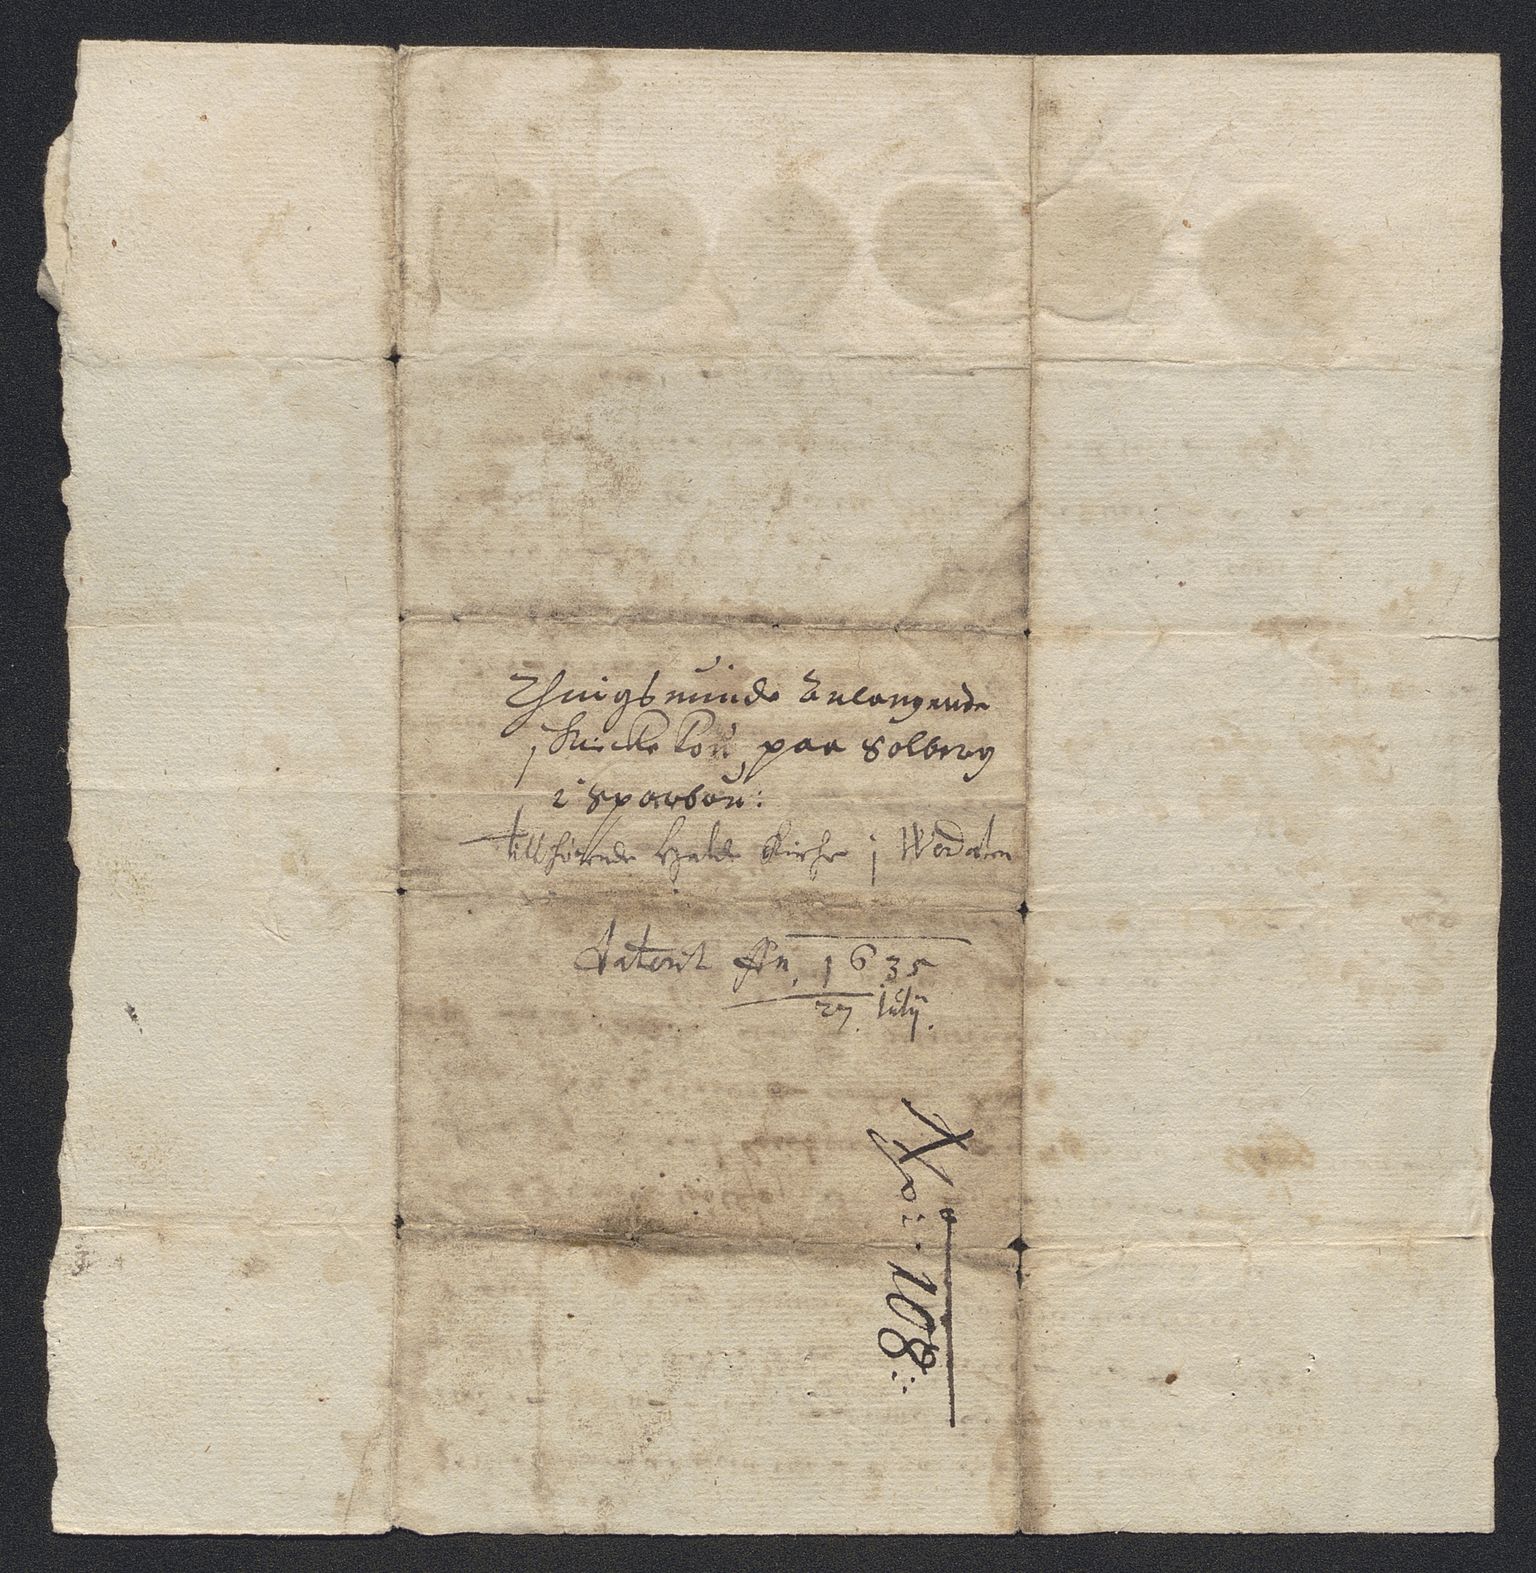 Thingsuinde Anlangende
j Kircke koe, paa Solberg
i Sparbou:
tillhörende Halde Kirche j Werdalen
Daterit Ao, 1635
27. Julij.
No: 108: